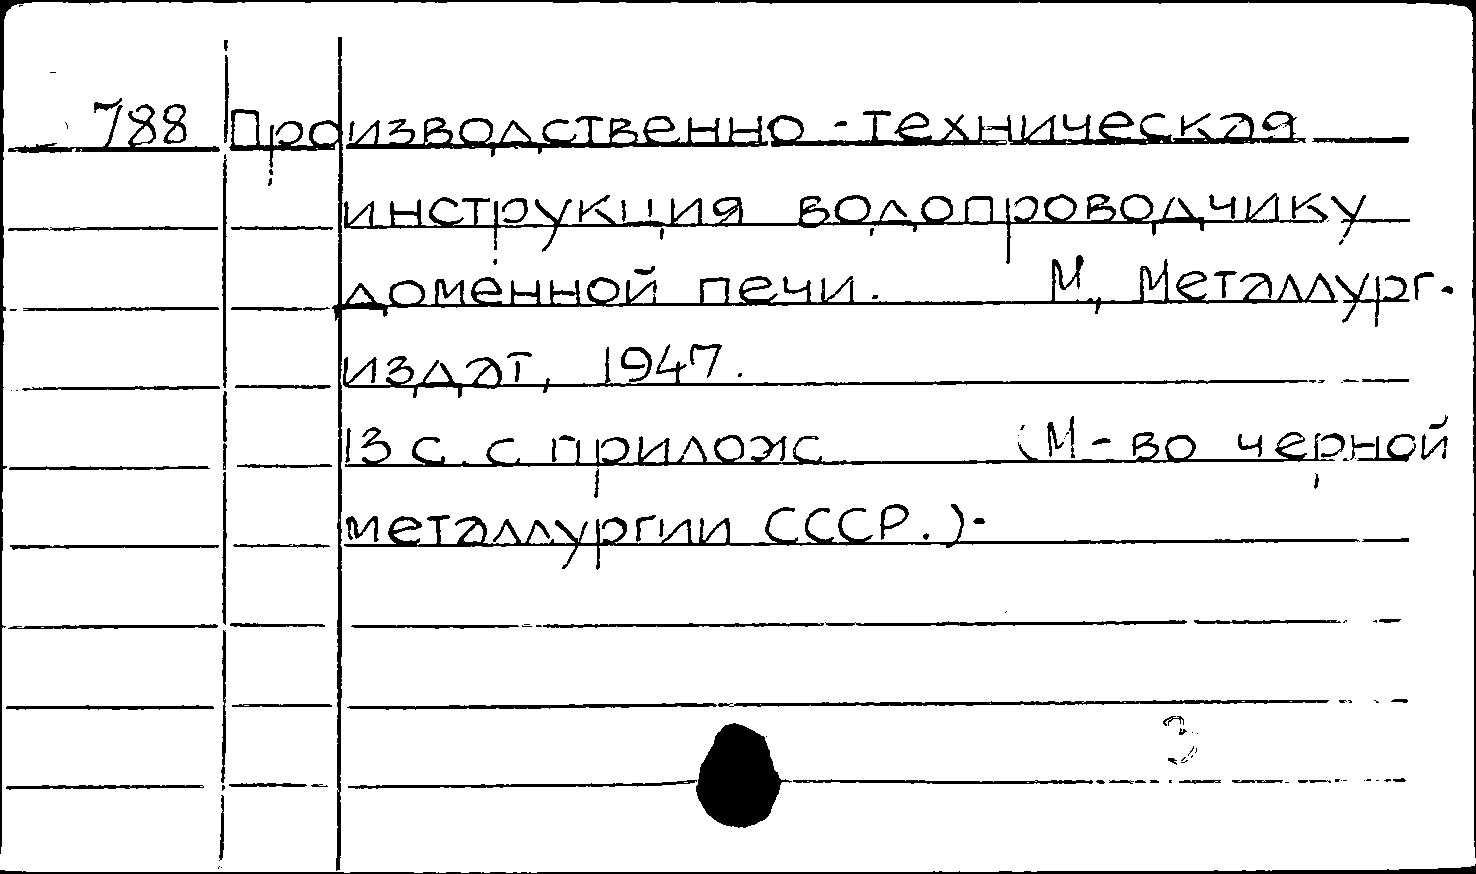 788 Производственно-техническая
инструкция водопроводчику
доменной печи. М., Металлург.
издат, 1947.
13 с. с прилож (М-во черной
металлургии СССР.).
3